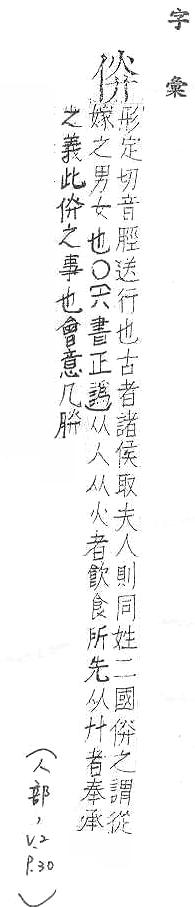 字彙
㑞
形定切音脛送行也古者諸侯取夫人則同姓二國㑞之謂從
嫁之男女也〇六書正譌从人从火者飲食所先从廾者奉承
之義此㑞之事也會意凡
(人部, V.2 P.30)